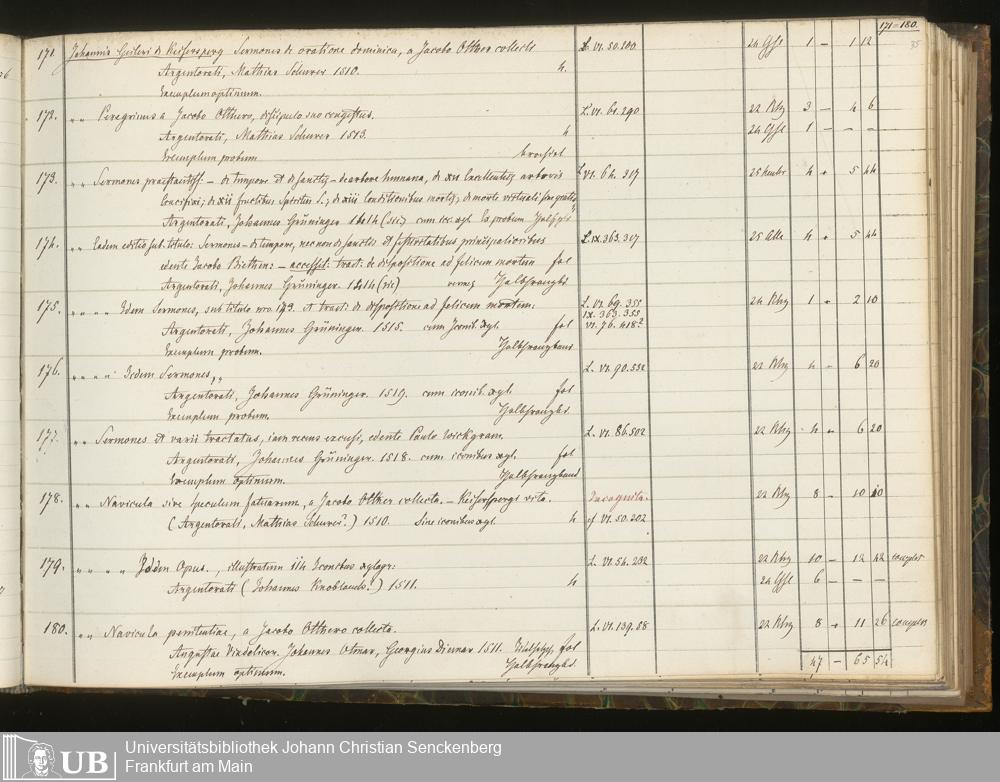 171-180.
35
171. Johannis Geileri de Keisersperg Sermones de oratione dominica, a Jacobo Otthero collecti L. VI. 50. 200 24 Gfl 1 – 1 12
Argentorati, Mathias Schurer 1510. 4.
Exemplum optimum.
172. " " Peregrinus a Jacobo Otthero, discipulo suo congestus. L. VI. 61. 290 22 Rthg 3 – 4 6
Argentorati, Mathias Schurer 1513. 4 24 Gfl 1 – – –
Exemplum probum brochirt
173. " " Sermones praestantiss. – de tempore et de sanctis – de arbore humana, de XII excellentiis arboris L. VI. 64. 317 4 5 44
Crucifixi; de XII fructibus Spiritus S.; de XIII conditionibus mortis; de morte virtuali sive gratiae
Argentorati, Johannes Grüninger 1414 (sic) cum icc. xyl. Ex. probum
174. " " Eadem editio sub titulo: Sermones – de tempore, necnon de sanctis et festivitatibus principalioribus L. IX. 363. 317 25 4 5 44
edente Jacobo Biethen: – accessit: tract: de dispositione ad felicem mortem fol
Argentorati, Johannes Grüninger. 1414 (sic) Halbfranzbd
175. " " " " Idem Sermones, sub titulo nro. 173. et tract: de dispositione ad felicem mortem: L. VI. 69. 355 24 Rthg 1 – 2 10
IX. 363. 355
Argentorati, Johannes Grüninger. 1515. cum Iconib. xyl. fol VI. 76. 418?
Exemplum probum. Halbfranzband
176. " " " " Idem Sermones, " L. VI. 90. 552 22 Rthg 4 – 6 20
Argentorati, Johannes Grüninger. 1519. cum iconib. xyl. fol
Exemplum probum. Halbfranzbd.
177. " " Sermones et varii tractatus, iam recens excusi, edente Paulo Wickgram. L. VI. 86. 502 22 Rthg 4 – 6 20
Argentorati, Johannes Grüninger. 1518. cum iconibus xyl. fol
Exemplum optimum. Halbfranzband
178. " " Navicula sive speculum fatuorum, a Jacobo Otther collecta. – Keiserspergi vita. Incognita. 22 Rthg 8 – 10 40
(Argentorati, Mathias Schurer?) 1510. Sine iconibus xyl. 4 cf VI. 50. 202
179. " " " " Idem Opus., illustratum 114 Iconibus xylogr: L. VI. 54. 232 22 Rthg 10 – 12 42 complet
Argentorati (Johannes Knoblauch.) 1511. 4 24 Gfl 6 – – –
180. " " Navicula penitentiae, a Jacobo Otthero collecta. L. VI. 139. 58 22 Rthg 8 11 26 complet
Augustae Vindelicor. Johannes Otmar, Georgius Diemar 1511. fol
Exemplum optimum. Halbfranzbd.
47 – 65 54
UB
Universitätsbibliothek Johann Christian Senckenberg
Frankfurt am Main